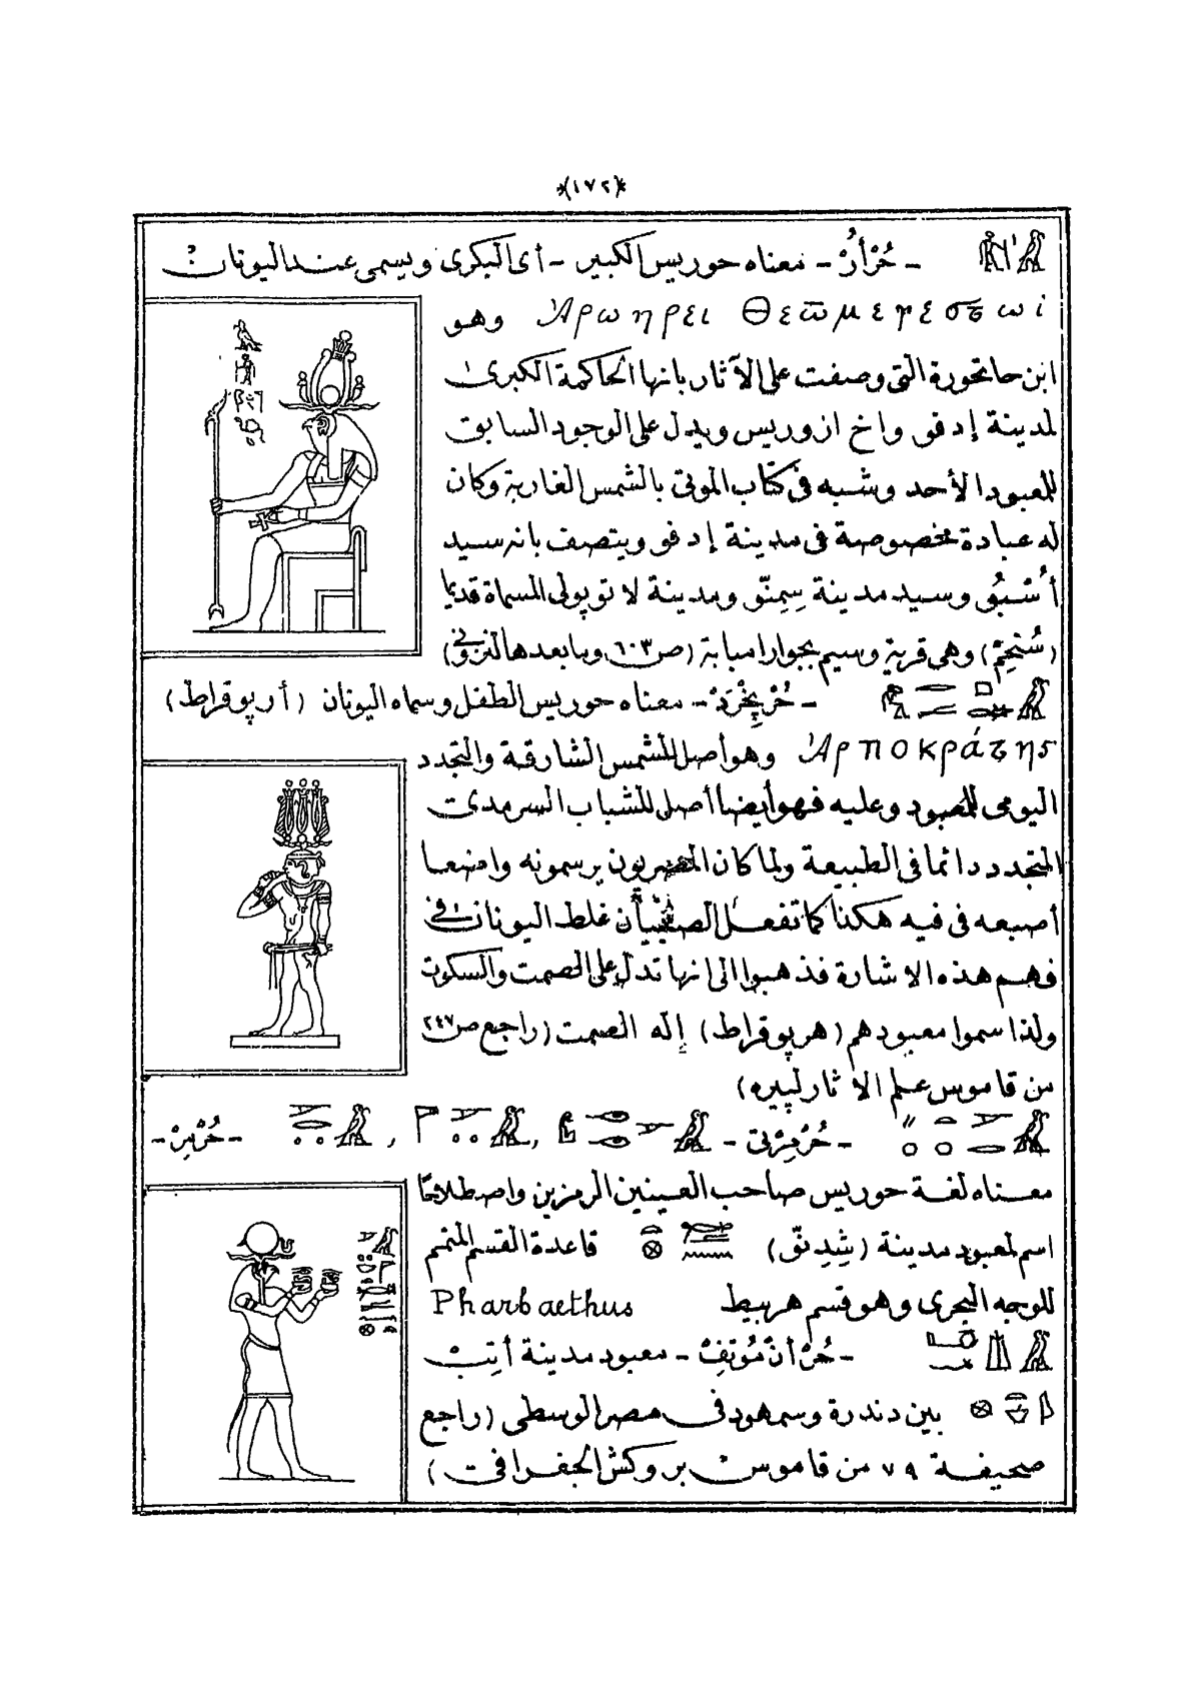 ﴿١٧٢﴾
- حُرْأُرْ - معناه حوريس الكبير - أى البكرى ويسمى عند اليونان :
Ἀρωηρει Θεῶμεγεσῳ وهو
ابن حاتحورة التى وصفت على الآثار بانها الحاكمة الكبرى
لمدينة إدفو واخ ازوريس ويدل على الوجود السابق
للمعبود الأحد وشبه فى كتاب الموتى بالشمس الغاربة وكان
له عبادة مخصوصة فى مدينة إدفو ويتصف بانه سيد
أُسْبُو وسيد مدينة سِمِنّو ومدينة لاتوپولى المسماة قديما
(سُنْخِمْ) وهى قرية وسيم بجوار امبابة (ص ٦٠٣ وما بعدها لنزونى)
- حُرْپِخْرَدْ - معناه حوريس الطفل وسماه اليونان (أرپوقراط)
Ἁρποκράτης وهو أصل للشمس الشارقة والتجدد
اليومى للمعبود وعليه فهو أيضا أصل للشباب السرمدى
المتجدد دائما فى الطبيعة ولما كان المصريون يرسمونه واضعا
أصبعه فى فيه هكذا كما تفعل الصبيان غلط اليونان فى
فهم هذه الاشارة فذهبوا الى انها تدل على الصمت والسكون
ولذا سموا معبودهم (هرپوقراط) إله الصمت (راجع ص ٢٤٧
من قاموس علم الآثار لپيره)
- حُرْمِرْتى - , , - حُرْمِرْ -
معناه لغة حوريس صاحب العينين الرمزين واصطلاحًا
اسم لمعبود مدينة (شِدِنّو) قاعدة القسم المتمم
للوجه البحرى وهو قسم هربيط Pharbaethus
- حُرْأنْمُوتفِ - معبود مدينة أتِبْ
بين دندرة وسمهود فى مصر الوسطى (راجع
صحيفة ٧٩ من قاموس بروكش الجغرافى)